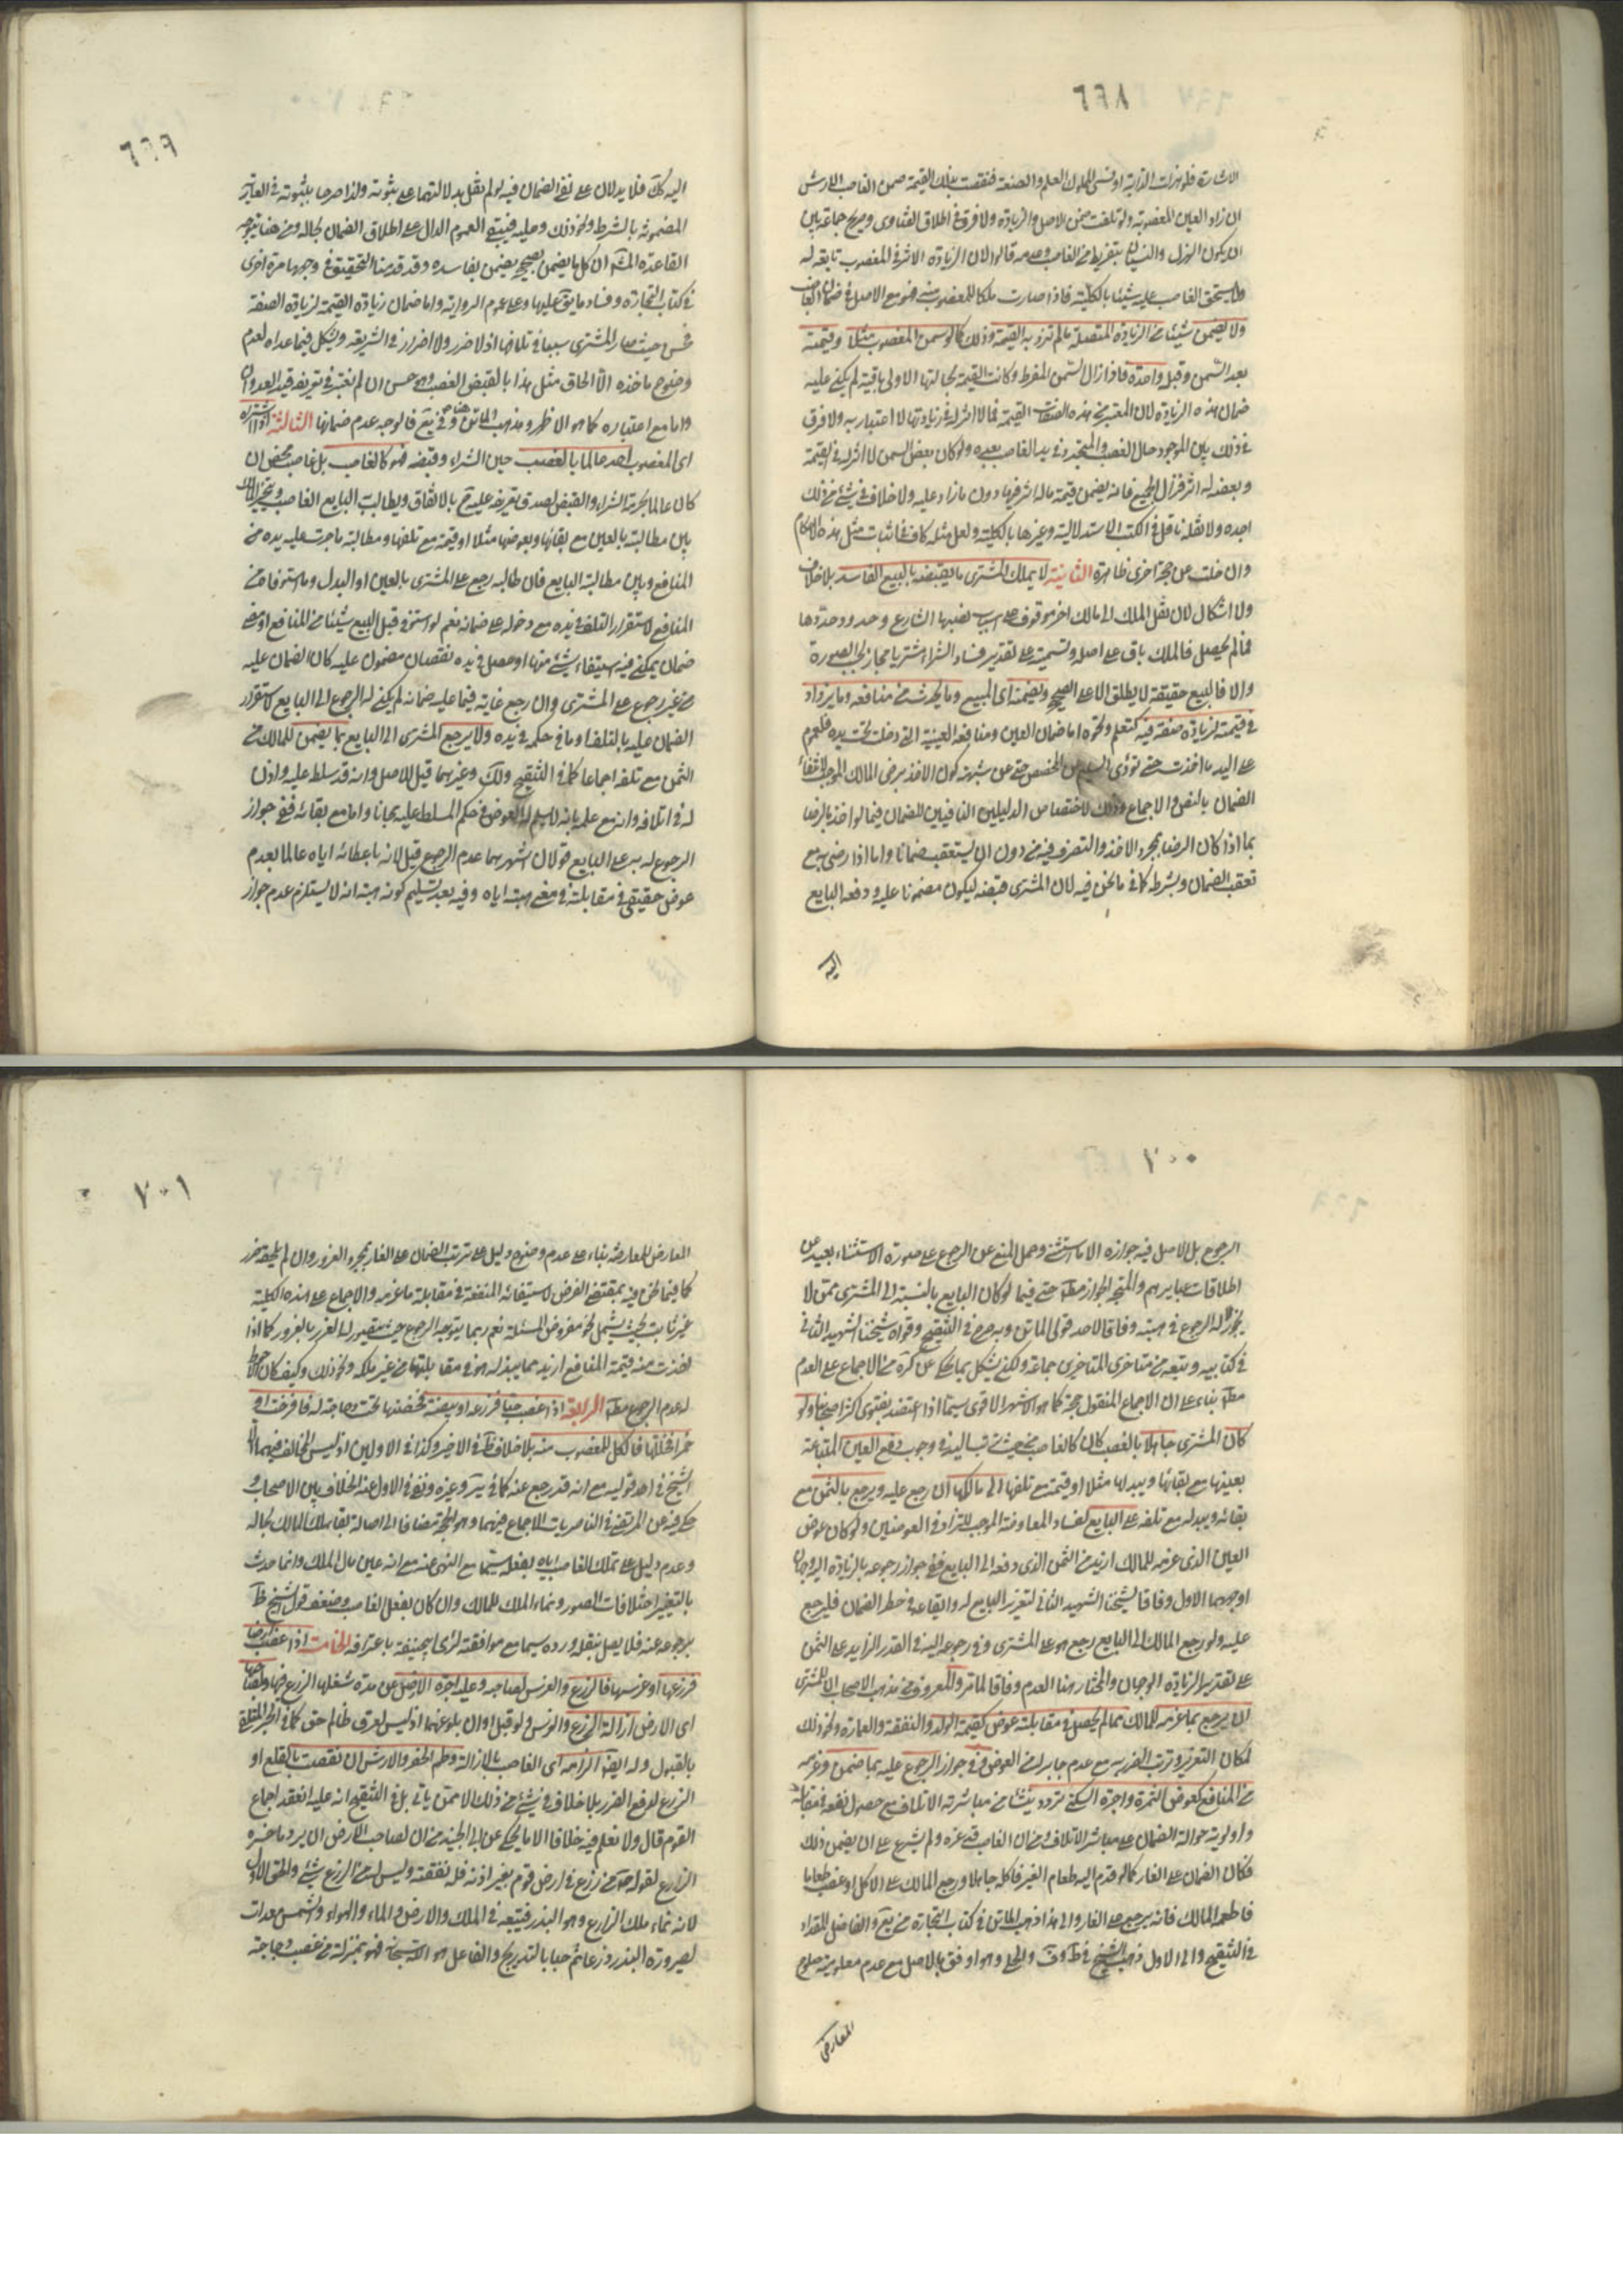 ٦٩٨
الاشارة فلو هزلت الدابة او نسى المملوك العلم والصنعة فنقصت بذلك القيمة ضمن الغاصب الارش
ان زاد العين المغصوبة ولو تلفت ضمن الاصل والزيادة ولا فرق في اطلاق الفتاوى وصريح جماعة بين
ان يكون الهزل والنسيان بتفريط من الغاصب وعدمه قالوا لان الزيادة الاثر في المغصوب تابعة له
ولا يستحق الغاصب عليه شيئا بالكلية فاذا صارت ملكا للمغصوب منه فهو مع الاصل في ضمان الغاصب
ولا يضمن شيئا من الزيادة المتصلة ما لم تزد به القيمة وذلك كما لو سمن المغصوب مثلا وقيمته
بعد السمن وقبله واحدة فاذا زال السمن المفرط وكانت القيمة بحالتها الاولى باقية لم يكن عليه
ضمان هذه الزيادة لان المعتبر من هذه الصفات القيمة فما لا اثر له في زيادتها لا اعتبار به ولا فرق
في ذلك بين الموجود حال الغصب والمتجدد في يد الغاصب بعده ولو كان بعض السمن لا اثر له في القيمة
وبعضه له اثر فزال الجميع فانه يضمن قيمة ما له اثر فيها دون ما زاد عليه ولا خلاف في شئ من ذلك
اجده ولا نقله ناقل في الكتب الاستدلالية وغيرها بالكلية ولعل مثله كاف في اثبات مثل هذه الاحكام
وان خلت عن حجة اخرى ظاهرة الثانية لا يملك المشترى ما يقبضه بالبيع الفاسد بلا خلاف
ولا اشكال لان نقل الملك الى مالك اخر موقوف على اسباب نصبها الشارع وحدود حددها
فما لم يحصل فالملك باق على اصله وتسميته على تقدير فساد الشراء مشتريا مجاز بحسب الصورة
والا فالبيع حقيقة لا يطلق الا على الصحيح ويضمنه اى المبيع وما يحدث من منافعه وما يزداد
في قيمته لزيادة صفة فيه كتعلم ونحوه اما ضمان العين ومنافعه العينية التى دخلت تحت يده فلعموم
على اليد ما اخذت حتى تؤدى السليم عن المخصص حتى عن شبهة كون الاخذ برضى المالك الموجب لانتفاء
الضمان بالنص والاجماع وذلك لاختصاص الدليلين النافيين للضمان فيما لو اخذ بالرضا
بما اذا كان الرضا بمجرد الاخذ والتصرف فيه من دون ان يستعقب ضمانا واما اذا رضى به مع
تعقب الضمان وبشرط كما في ما نحن فيه لان المشترى قبضه ليكون مضمونا عليه ودفعه البايع
اليه
٦٩٩
اليه كك فلا يدلان على نفى الضمان فيه لو لم نقل بدلالتهما على ثبوته ولذا صرحا بثبوته في العارية
المضمونة بالشرط ونحو ذلك وعليه فيبقى العموم الدال على اطلاق الضمان بحاله ومن هنا يتوجه
القاعدة المشهورة ان كل ما يضمن بصحيحه يضمن بفاسده وقد قدمنا التحقيق في وجهها مرة اخرى
في كتاب التجارة وفساد ما يقال عليها وعلى عموم الرواية واما ضمان زيادة القيمة لزيادة الصفة
فحسن حيث صار المشترى سببا في تلافها اذ لا ضرر ولا اضرار في الشريعة ويشكل فيما عداه لعدم
وضوح ماخذه الا الحاق مثل هذا بالقبض الغصب وهو حسن ان لم نعتبر في تعريفه قيد العدوان
واما مع اعتباره كما هو الاظهر ومذهب الماتن هنا وفي يع فالوجه عدم ضمانها الثالثة اذا اشتراه
اى المغصوب احد عالما بالغصب حين الشراء وقبضه فهو كالغاصب بل غاصب محض ان
كان عالما بحرمة الشراء والقبض لصدق تعريفه عليه ح بالاتفاق ويطالب البايع الغاصب ويتخير المالك
بين مطالبته بالعين مع بقائها وبعوضها مثلا او قيمة مع تلفها ومطالبة ما جرت عليه يده من
المنافع وبين مطالبة البايع فان طالبه رجع على المشترى بالعين او البدل وما استوفاه من
المنافع لاستقرار التلف في يده مع دخوله على ضمانه نعم لو استوفى قبل البيع شيئا من المنافع او مضى
ضمان يمكن فيه استيفاء شئ منها او حصل في يده نقصان مضمون عليه كان الضمان عليه
من غير رجوع على المشترى وان رجع غايته فيما عليه ضمانه لم يكن له الرجوع الى البايع لاستقرار
الضمان عليه بالتلف او ما في حكمه في يده ولا يرجع المشترى الى البايع بما يضمن للمالك من
الثمن مع تلفه اجماعا كما في التنقيح ولك وغيرهما قيل للاصل وانه قد سلط عليه واذن
له في اتلافه وانه مع علمه بانه لا يسلم له العوض في حكم المسلط عليه مجانا واما مع بقائه ففي جواز
الرجوع له به على البايع قولان اشهرهما عدم الرجوع قيل لانه باعطائه اياه عالما بعدم
عوض حقيقى في مقابلته في معنى هبته اياه وفيه بعد تسليم كونه هبة انه لا يستلزم عدم جواز
٧٠٠
الرجوع بل الاصل فيه جوازه الا ما استثنى وحمل المنع عن الرجوع على صورة الاستثناء بعيد عن
اطلاقات عبايرهم والمتجه الجواز مطلقا حتى فيما لو كان البايع بالنسبة الى المشترى ممن لا
يجوز له الرجوع في هبته وفاقا لاحد قولى الماتن وبه صرح في التنقيح وقواه شيخنا الشهيد الثانى
في كتابيه وتبعه من متاخرى المتاخرين جماعة ولكن يشكل بما حكى عن كره من الاجماع على العدم
مطلقا بناء على ان الاجماع المنقول حجة كما هو الاشهر الاقوى سيما اذا اعتضد بفتوى اكثر اصحابنا ولو
كان المشترى جاهلا بالغصب كان كالغاصب من حيث ترتب اليد في وجوب دفع العين المبتاعة
بعينها مع بقائها وببدلها مثلا او قيمة مع تلفها الى مالكها ان رجع عليه ويرجع بالثمن مع
بقائه وببدله مع تلفه على البايع لفساد المعاوضة الموجب للتراد في العوضين ولو كان عوض
العين الذى غرمه للمالك ازيد من الثمن الذى دفعه الى البايع ففي جواز رجوعه بالزيادة اليه وجهان
اوجههما الاول وفاقا لشيخنا الشهيد الثانى لتغرير البايع له وايقاعه في خطر الضمان فليرجع
عليه ولو رجع المالك الى البايع رجع هو على المشترى وفي رجوعه اليه في القدر الزايد على الثمن
على تقدير الزيادة الوجهان والمختار هنا العدم وفاقا لما مر والمعروف من مذهب الاصحاب ان للمشترى
ان يرجع بما غرمه للمالك مما لم يحصل في مقابلته عوض كقيمة الولد والنفقة والعمارة ونحو ذلك
لمكان التغرير وترتب الضرر به مع عدم جابر له من العوض وفي جواز الرجوع عليه بما ضمن وغرمه
من المنافع كعوض الثمرة واجرة السكنى تردد ينشأ من مباشرته الاتلاف مع حصول نفعه في مقابلة
واولوية حوالة الضمان على مباشر الاتلاف ومن ان الغاصب قد غره ولم يشرع على ان يضمن ذلك
فكان الضمان على الغار كما لو قدم اليه طعام الغير فاكله جاهلا ورجع المالك على الاكل او غصب طعاما
فاطعمه المالك فانه يرجع على الغار والى هذا ذهب الماتن في كتاب التجارة من يع والفاضل المقداد
في التنقيح والى الاول ذهب الشيخ في ط وف والحلى وهو اوفق بالاصل مع عدم معلومية صلوح
المعارض
٧٠١
المعارض للمعارضة بناء على عدم وضوح دليل على ترتب الضمان على الغار بمجرد الغرور وان لم يلحقه ضرر
كما فيما نحن فيه بمقتضى الفرض لاستيفائه المنفعة في مقابلة ما غرمه والاجماع على هذه الكلية
غير ثابت بحيث يشمل نحو مفروض المسئلة نعم ربما يتوجه الرجوع حيث يتصور له الضرر بالغرور كما اذا
اخذت منه قيمة المنافع ازيد مما يبذله هو في مقابلتها من غير ملكه ونحو ذلك وكيف كان الاحوط
له عدم الرجوع مطلقا الرابعة اذا غصب حبا فزرعه او بيضة فحضنتها تحت دجاجة له فافرخت او
خمرا فخللها فالكل للمغصوب منه بلا خلاف ظ في الاخير وكذا في الاولين اذ ليس المخالف فيهما الا
الشيخ في احد قوليه مع انه قد رجع عنه كما في ير وغيره ونفى في الاول عنه الخلاف بين الاصحاب و
حكى فيه عن المرتضى في الناصريات الاجماع فيهما وهو الحجة مضافا الى اصالة بقاء ملك المالك بحاله
وعدم دليل على تملك الغاصب اياه بفعله سيما مع النهى عنه مع انه عين مال الملك وانما حدث
بالتغيير اختلافات الصور ونماء الملك للمالك وان كان بفعل الغاصب وضعف قول الشيخ ظ
برجوعه عنه فلا يصل بنقله ورده سيما مع موافقته لرأى ابيحنيفة باعترافه الخامسة اذا غصب ارضا
فزرعها او غرسها فالزرع والغرس لصاحبه وعليه اجرة الارض عن مدة شغلها الزرع ولصاحبها
اى الارض ازالة الزرع والغرس ولو قبل اوان بلوغهما اذ ليس لعرق ظالم حق كما في الخبر المتلقى
بالقبول وله ايضا الزامه اى الغاصب بالازالة وطم الحفر والارش ان نقصت بالقلع او
الزرع لدفع الضرر بلا خلاف في شئ من ذلك الا ممن ياتى بل في التنقيح انه عليه انعقد اجماع
القوم قال ولا نعلم فيه خلافا الا ما يحكى عن ابن الجنيد من ان لصاحب الارض ان يرد ما خسره
الزارع لقوله ص من زرع في ارض قوم بغير اذنه فله نفقته وليس له من الزرع شئ والحق الاول
لانه نماء ملك الزارع وهو البذر فيتبعه في الملك والارض والماء والهواء والشمس معدات
لصيرورة البذر زرعا ثم حبا بالتدريج والفاعل هو الله سبحانه فهو بمنزلة من غصب دجاجة